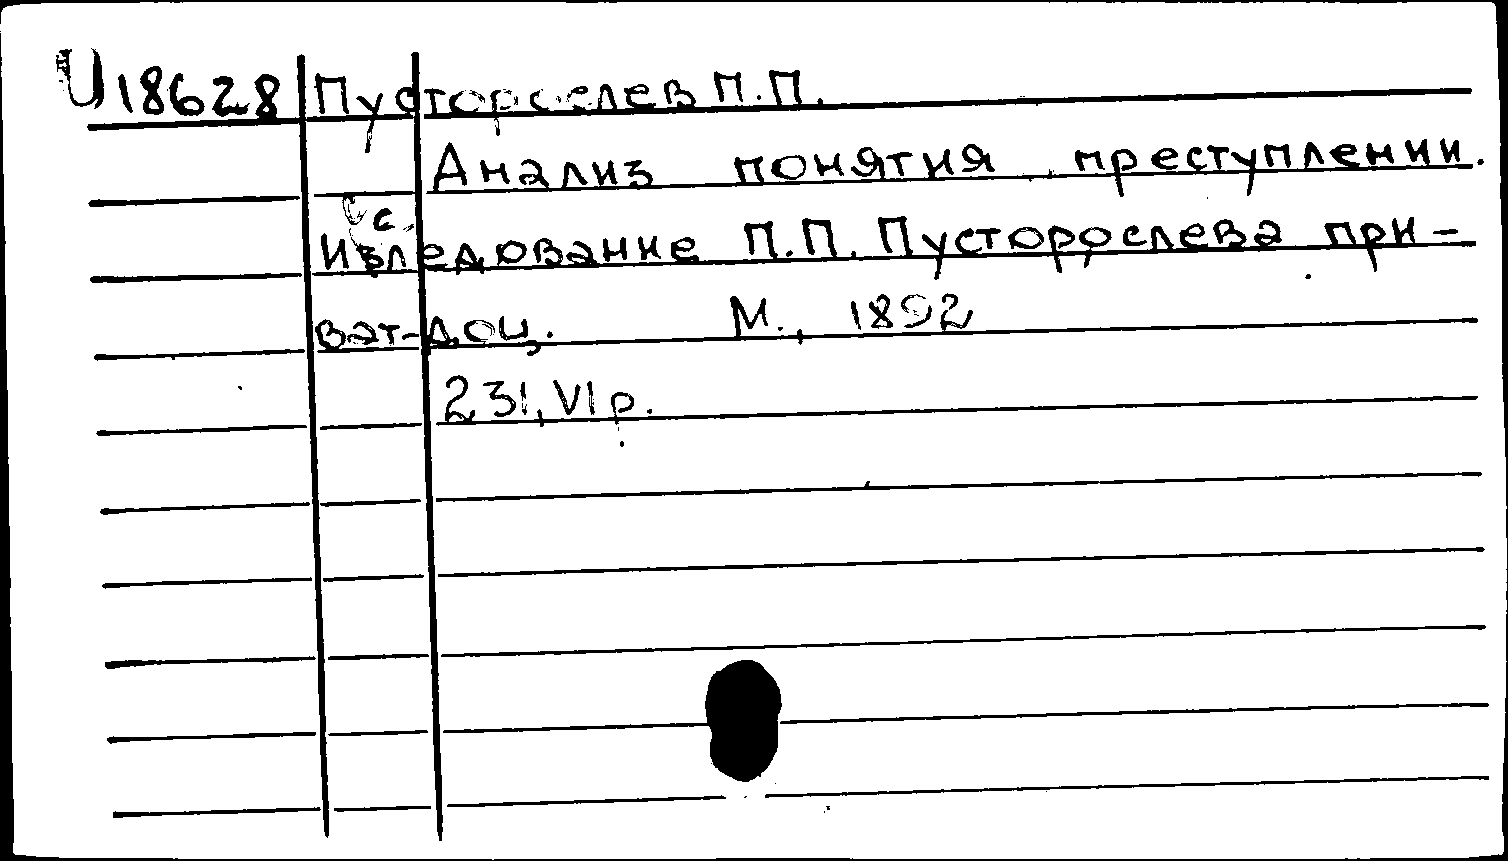 U 18628 Пустороелев П.П.
Анализ понятия преступлении.
Изследование П.П. Пустороелева при-
ват-доц. М., 1892
231, VI p.